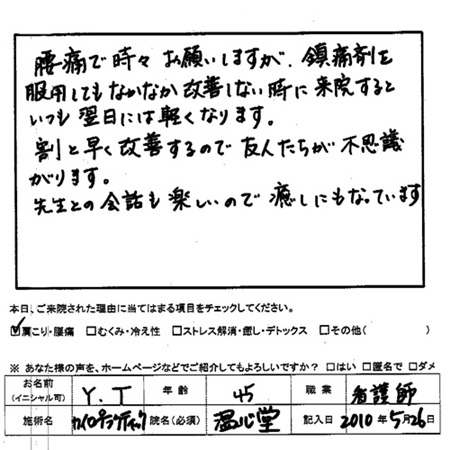 腰痛で時々お願いしますが、鎮痛剤を
服用してもなかなか改善しない時に来院すると
いつも翌日には軽くなります。
割と早く改善するので友人たちが不思議
がります。
先生との会話も楽しいので癒しにもなっています
本日、ご来院された理由に当てはまる項目をチェックしてください。
☑肩こり・腰痛 □むくみ・冷え性 □ストレス解消・癒し・デトックス □その他( )
※ あなた様の声を、ホームページなどでご紹介してもよろしいですか? □はい □匿名で □ダメ
お名前(イニシャル可) Y.T 年齢 45 職業 看護師
施術名 カイロプラクティック 院名(必須) 温心堂 記入日 2010年5月26日